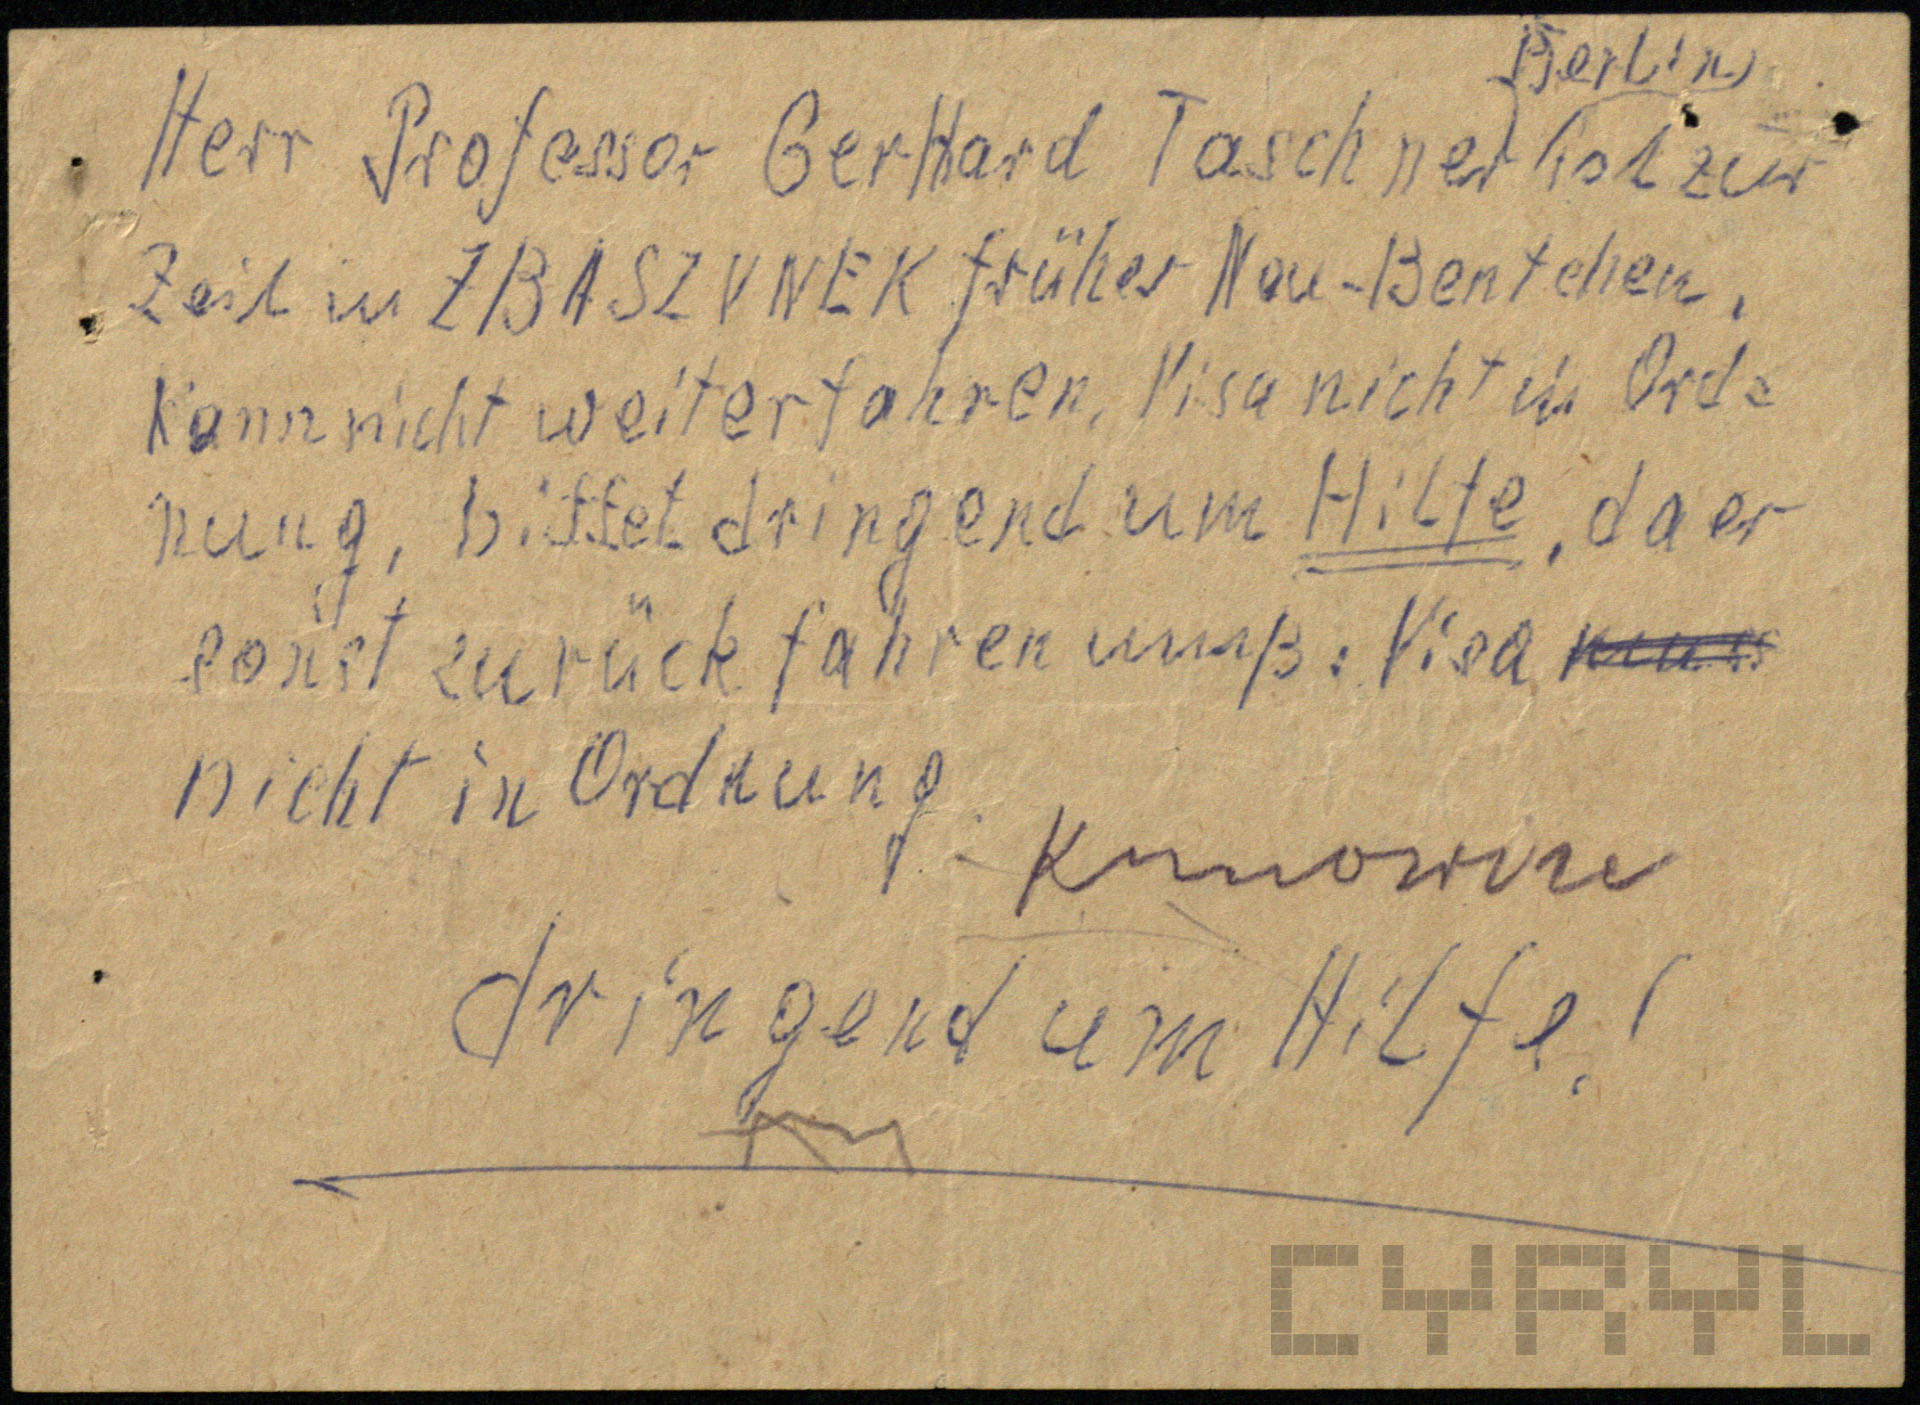 Berlin
Herr Professor GerHard Taschner hat zur
Zeit in ZBASZYNEK früher Neu-Bentchen,
Kann nicht weiterfahren, Visa nicht in Ord=
nung, bittet dringend um Hilfe, da er
sonst zurückfahren muß: Visa
nicht in Ordnung
dringend um Hilfe!
CYRYL